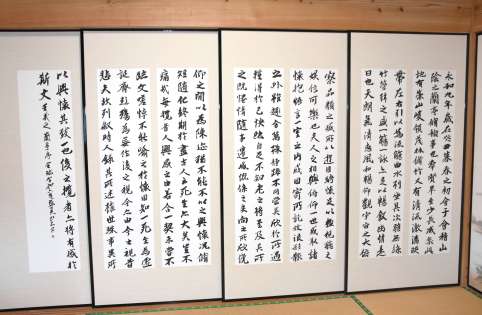 永和九年歳在癸丑暮春之初會于會稽山
陰之蘭亭脩稧事也羣賢畢至少長咸集此
地有崇山峻領茂林脩竹又有清流激湍映
帶左右引以為流觴曲水列坐其次雖無絲
竹管弦之盛一觴一詠亦足以暢叙幽情是
日也天朗氣清惠風和暢仰觀宇宙之大俯
察品類之盛所以遊目騁懷足以極視聽之
娯信可樂也夫人之相與俯仰一世或取諸
懷抱悟言一室之内或因寄所託放浪形骸
之外雖趣舍萬殊靜躁不同當其欣於所遇
暫得於己快然自足不知老之將至及其所
之既惓情隨事遷感慨係之矣向之所欣俛
仰之閒以為陳迹猶不能不以之興懷況脩
短隨化終期於盡古人云死生亦大矣豈不
痛哉每攬昔人興感之由若合一契未嘗不
臨文嗟悼不能喩之於懷固知一死生為虚
誕齊彭殤為妄作後之視今亦由今之視昔
悲夫故列叙時人録其所述雖世殊事異所
以興懷其致一也後之攬者亦將有感於
斯文 王羲之蘭亭序